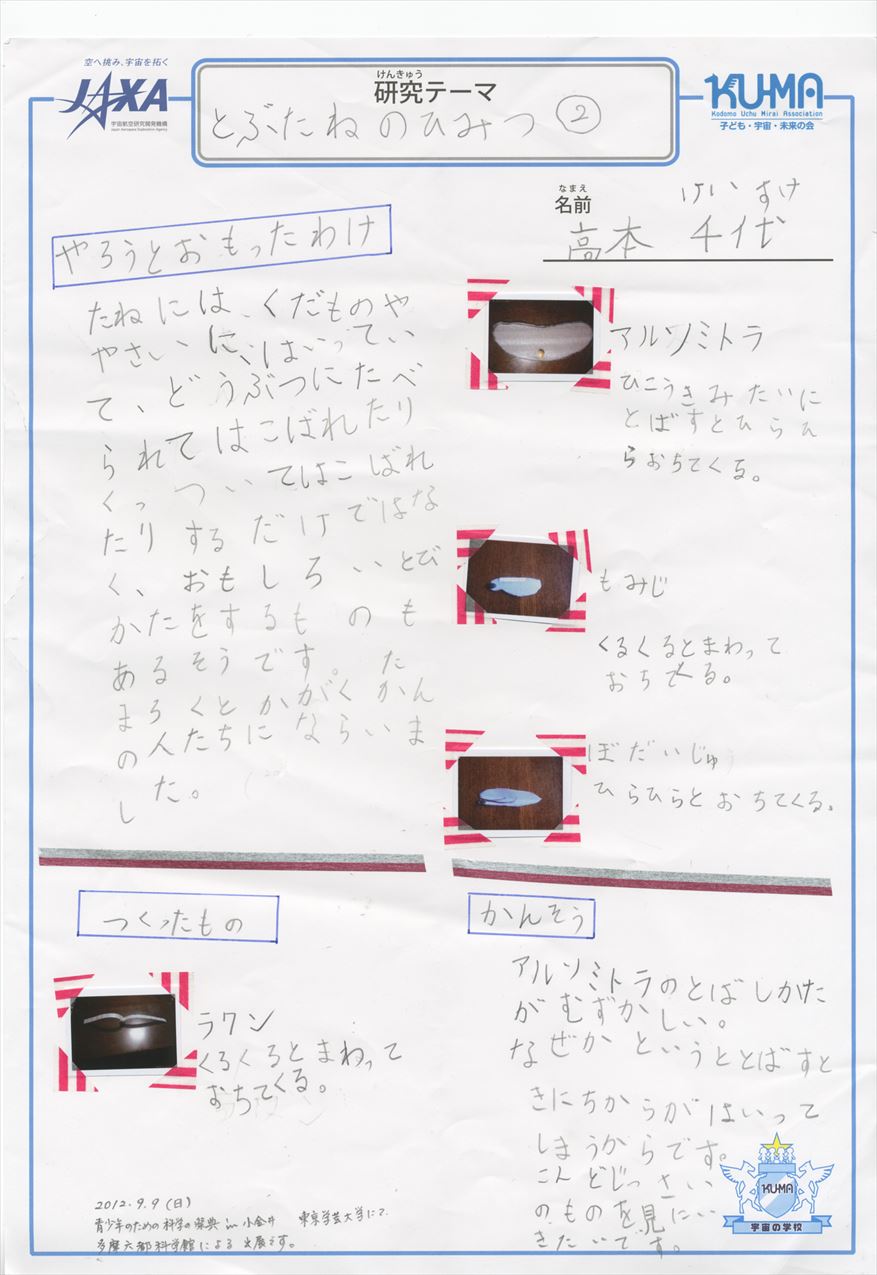 空へ挑み、宇宙を拓く
JAXA
宇宙航空研究開発機構
Japan Aerospace Exploration Agency
けんきゅう
研究テーマ
とぶたねのひみつ②
KU-MA
Kodomo Uchu Mirai Association
子ども・宇宙・未来の会
なまえ
名前
けいすけ
高本
やろうとおもったわけ
たねには、くだものや
やさいに、はいってい
て、どうぶつにたべ
られてはこばれたり
くっついてはこばれ
たりするだけではな
く、おもしろいとび
かたをするものも
あるそうです。た
まろくとかがくかん
の人たちにならいま
した。
アルソミトラ
ひこうきみたいに
とばすとひらひ
らおちてくる。
もみじ
くるくるとまわって
おちてくる。
ぼだいじゅ
ひらひらとおちてくる。
つくったもの
ラワン
くるくるとまわって
おちてくる。
かんそう
アルソミトラのとばしかた
がむずかしい。
なぜかというととばすと
きにちからがはいって
しまうからです。
こんどじっさい
のものを見にい
きたいです。
2012.9.9(日)
青少年のための科学の祭典 in 小金井 東京学芸大学にて
多摩六都科学館による出展です。
KU-MA
宇宙の学校